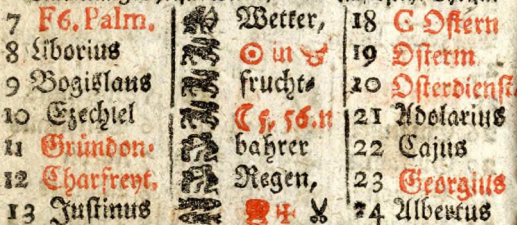 7 F 6. Palm. Wetter, 18 G Ostern
8 Liborius ☉ in ♉ 19 Osterm
9 Bogislaus frucht⸗ 20 Osterdienst.
10 Ezechiel ☾ 5. 56. n 21 Adolarius
11 Gründon⸗ bahrer 22 Cajus
12 Charfreyt. Regen, 23 Georgius
13 Justinus 24 Albertus